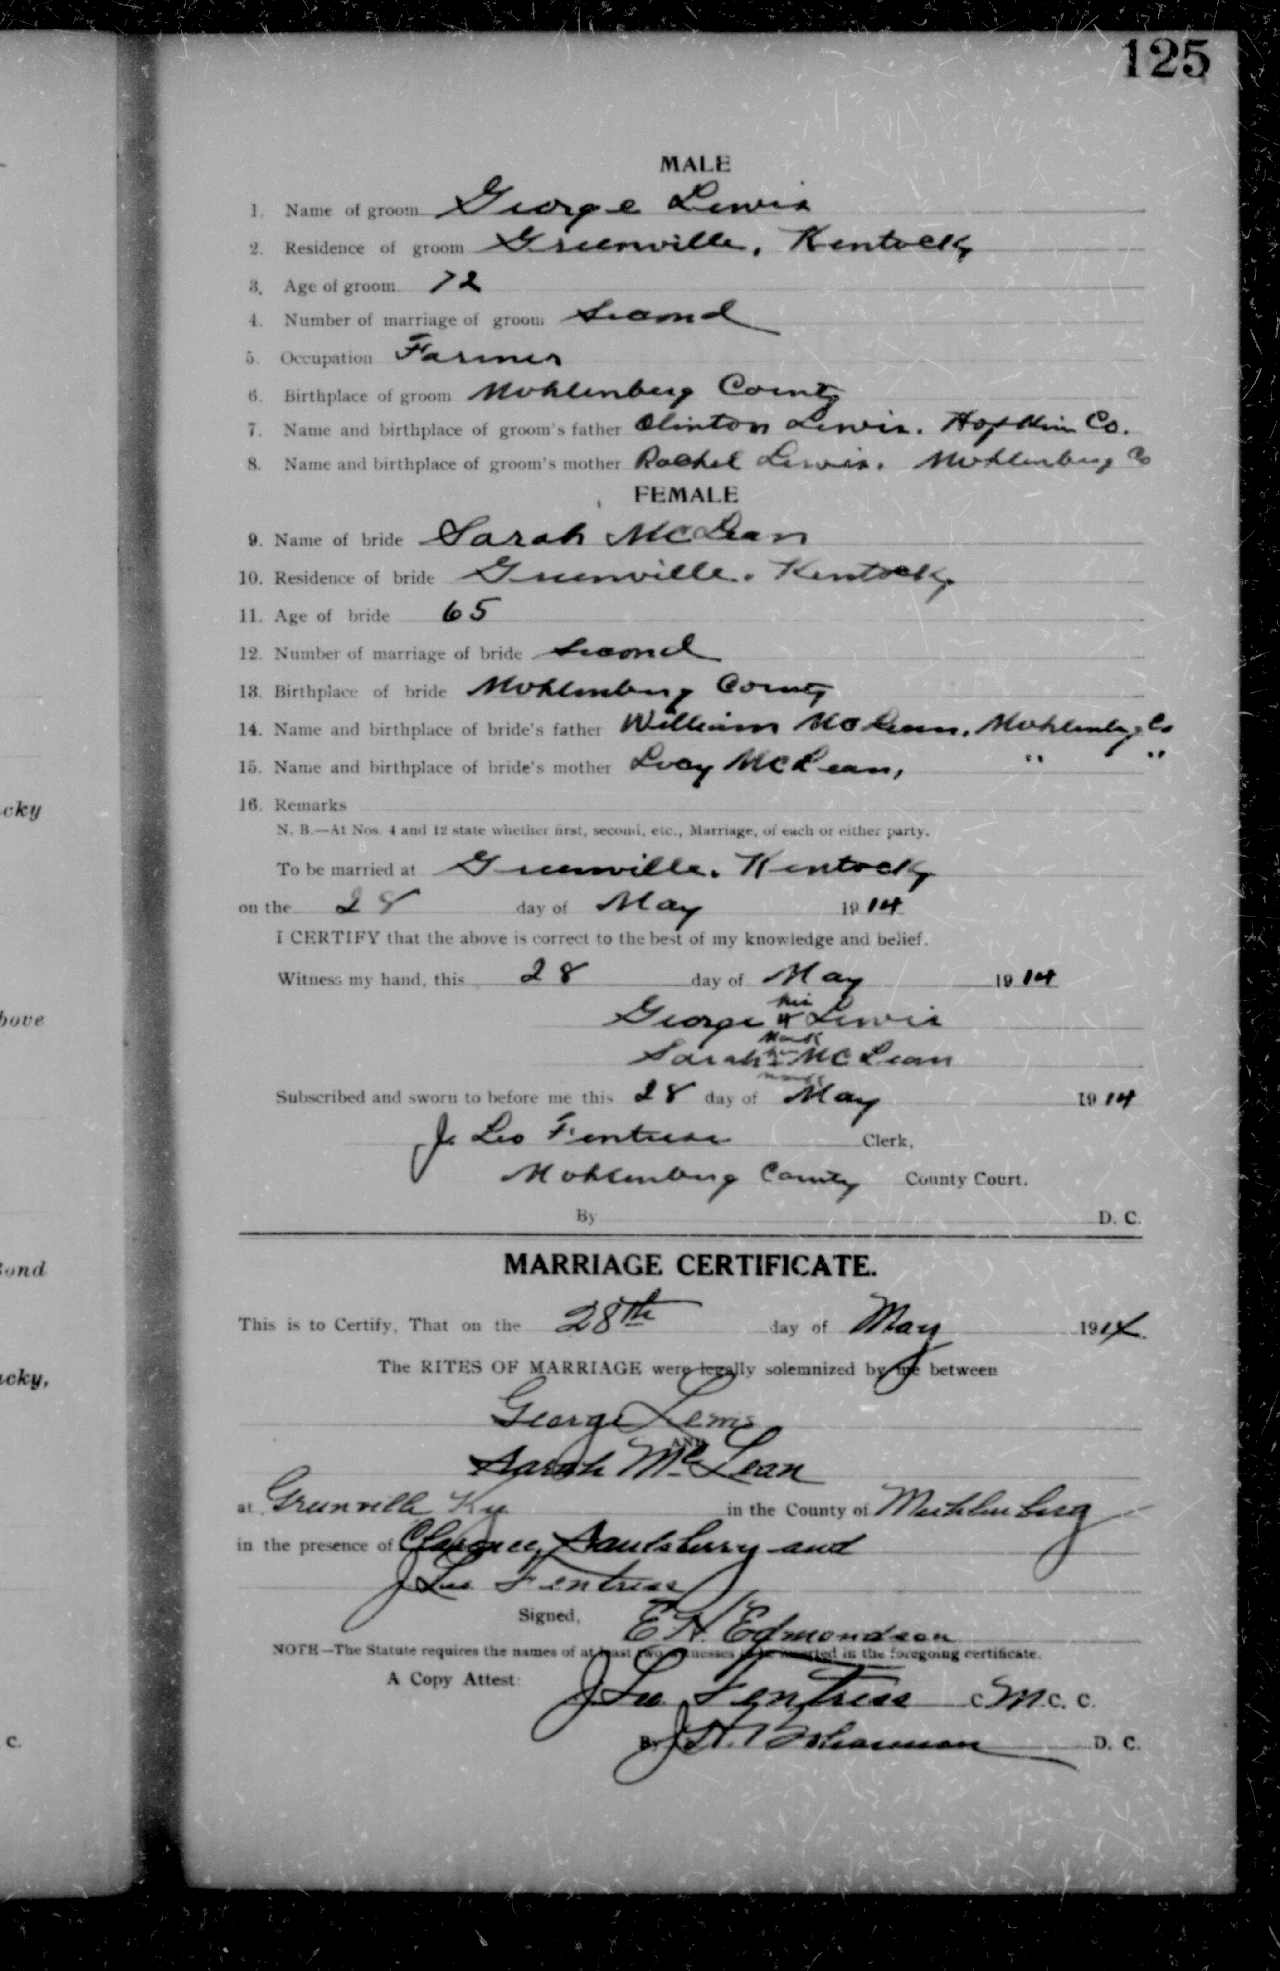 125
MALE
1. Name of groom George Lewis
2. Residence of groom Greenville, Kentucky
3. Age of groom 72
4. Number of marriage of groom Second
5. Occupation Farmer
6. Birthplace of groom Muhlenberg County
7. Name and birthplace of groom's father Clinton Lewis. Hopkin Co.
8. Name and birthplace of groom's mother Rachel Lewis. Muhlenberg Co
FEMALE
9. Name of bride Sarah McLean
10. Residence of bride Greenville. Kentucky.
11. Age of bride 65
12. Number of marriage of bride Second
13. Birthplace of bride Muhlenberg County
14. Name and birthplace of bride's father William McLean, Muhlenberg Co
15. Name and birthplace of bride's mother Lucy McLean, " "
16. Remarks
cky
N. B.—At Nos. 4 and 12 state whether first, second, etc., Marriage, of each or either party.
To be married at Greenville. Kentucky
on the 28 day of May 1914
I CERTIFY that the above is correct to the best of my knowledge and belief.
Witness my hand, this 28 day of May 1914
his
bove
George x Lewis
mark
Sarah her x McLean
mark
Subscribed and sworn to before me this 28 day of May 1914
J. Leo Fentress Clerk,
Muhlenberg County County Court.
By D. C.
MARRIAGE CERTIFICATE.
ond
This is to Certify, That on the 28th day of May 1914
The RITES OF MARRIAGE were legally solemnized by me between
cky,
George Lewis
AND
Sarah McLean
at Greenville Ky in the County of Muhlenberg
in the presence of Clarence Saulsberry and
J Leo Fentress
Signed, E. H. Edmondson
NOTE—The Statute requires the names of at least two witnesses to be inserted in the foregoing certificate.
A Copy Attest: J Leo Fentress C M C. C.
C.
By J. H. Bohannan D. C.